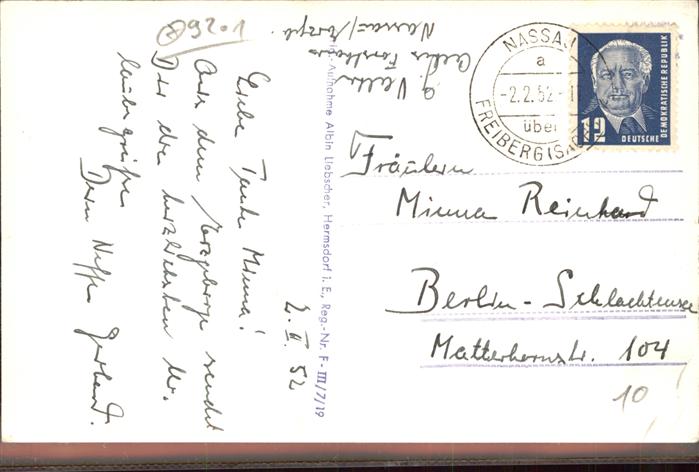 9201
Nassau/Erzgeb.
Liebe Tante Minna!
Aus dem Erzgebirge sendet
Dir die herzlichsten
Dein Neffe Gerhard.
2. II. 52
Orig.-Aufnahme Albin Liebscher, Hermsdorf i. E., Reg.-Nr. F-III/7/19
NASSAU
a
-2.2.52.-1
über
FREIBERG(SACHS)
12
DEUTSCHE
DEMOKRATISCHE REPUBLIK
Fräulein
Minna Reinhard
Berlin-Schlachtensee
Matterhornstr. 104
10